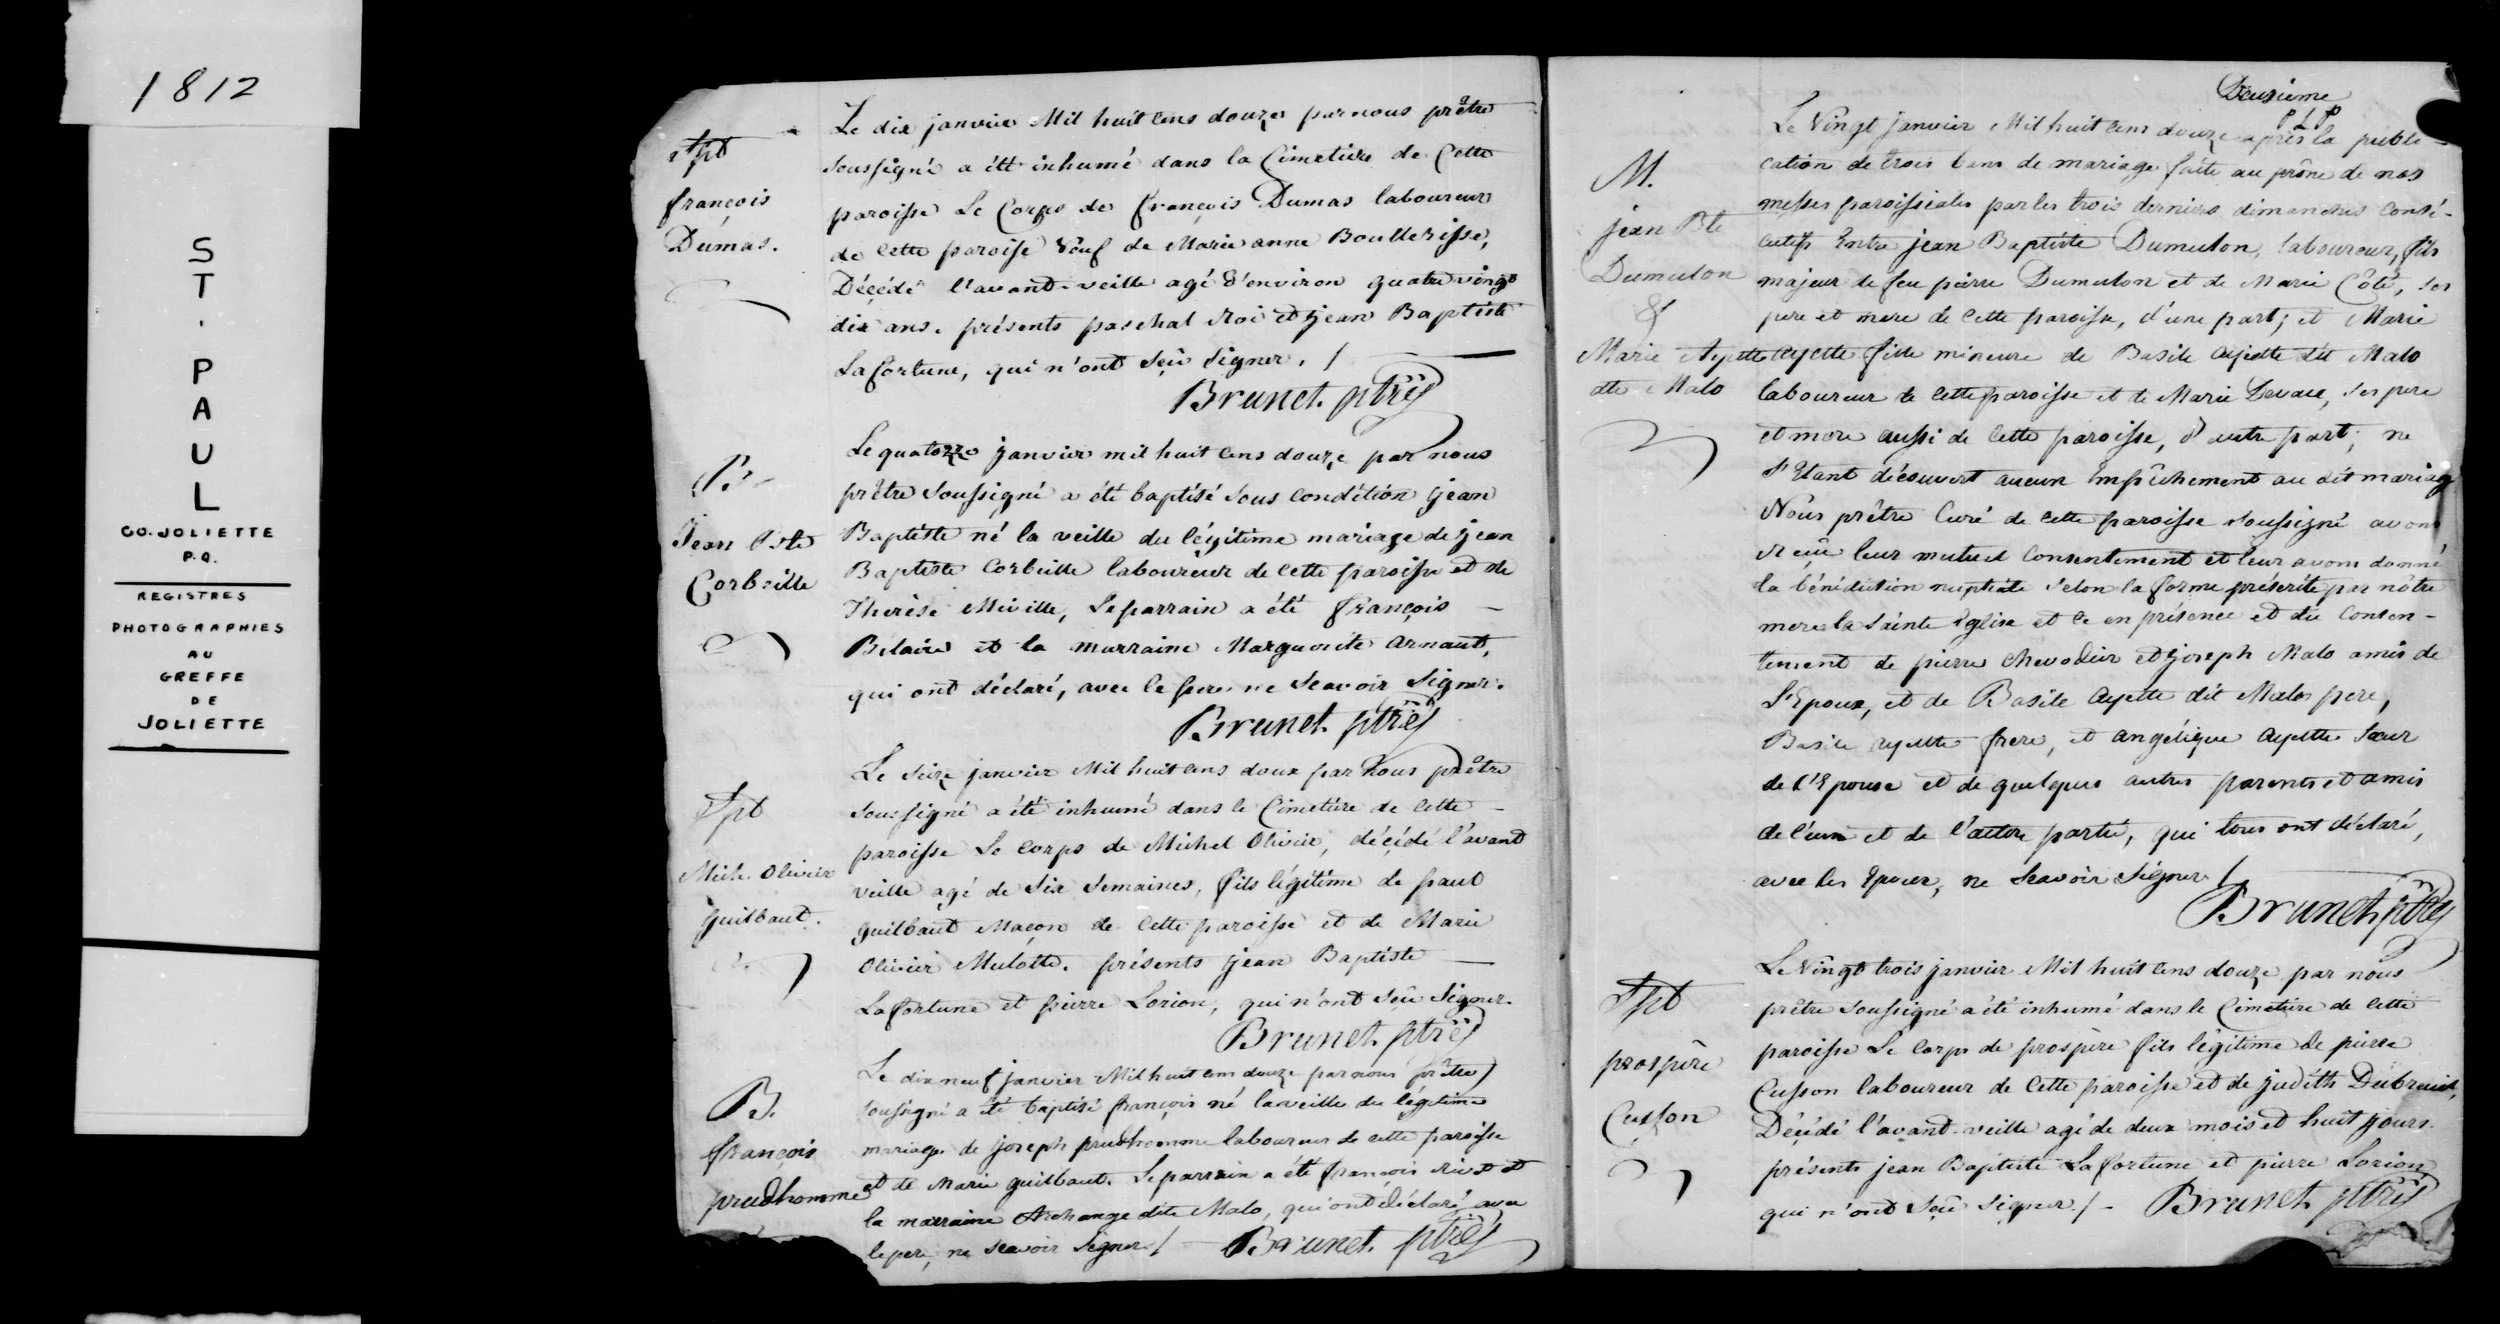 1812
ST. PAUL
CO. JOLIETTE
P.Q.
REGISTRES
PHOTOGRAPHIES
AU
GREFFE
DE
JOLIETTE
Spt
françois
Dumas.
Le dix janvier Mil huit cens douze par nous prêtre
soussigné a été inhumé dans la Cimetiere de Cette
paroisse Le Corps de françois Dumas laboureur
de cette paroisse Veuf de Marie anne Boullerisse,
Décédé l'avant-veille agé d'environ quatre vingt
dix ans. présents paschal Roi et jean Baptiste
Lafortune, qui n'ont Sçû signer. /
Brunet ptre
B.
Jean Bte
Corbeille
Le quatorze janvier mil huit cens douze par nous
prêtre Soussigné a été baptisé sous condition jean
Baptiste né la veille du légitime mariage de jean
Baptiste Corbeille laboureur de cette paroisse et de
Therèse Miville, Le parrain a été françois
Belair et la marraine Marguerite Arnaut,
qui ont déclaré, avec le pere ne Scavoir Signer.
Brunet ptre
Spt
Mich. Olivier
guilbaut.
Le Seize janvier Mil huit cens douze par Nous prêtre
soussigné a été inhumé dans le Cimetière de cette
paroisse Le corps de Michel Olivier, décédé l'avant
veille agé de Six Semaines, fils légitime de paul
guilbaut Maçon de cette paroisse et de Marie
Olivier Mulotte. présents jean Baptiste
Lafortune et pierre Lorion, qui n'ont Sçû Signer.
Brunet ptre
B.
françois
prudhomme
Le dix neuf janvier Mil huit cens douze par nous prêtre
soussigné a été baptisé françois né la veille du légitime
mariage de joseph prudhomme laboureur de cette paroisse
et de Marie guilbaut. Le parrain a été françois Rivet et
la marraine Archange dite Malo, qui ont déclaré avec
le pere, ne scavoir signer /
Brunet ptre
Deuxième
P L P
M.
jean Bte
Dumulon
&
Marie Ayette
dte Malo
Le Vingt janvier Mil huit cens douze après la publi-
cation de trois bans de mariage faite au prône de nos
messes paroissiales par les trois derniers dimanches consé-
cutifs Entre jean Baptiste Dumulon, laboureur, fils
majeur de feu pierre Dumulon et de Marie Côté, ses
pere et mere de cette paroisse, d'une part; et Marie
ayette fille mineure de Basile ayette dit Malo
laboureur de cette paroisse et de Marie, ses pere
et mere aussi de cette paroisse, d'autre part; ne
s'Etant découvert aucun Empêchement au dit mariage
Nous prêtre Curé de cette paroisse soussigné avons
reçû leur mutuel Consentement et leur avons donné
la bénédiction nuptiale selon la forme préscrite par nôtre
mere la Sainte Eglise et ce en présence et du Consen-
tement de pierre chevodier et joseph Malo amis de
L'Epoux, et de Basile ayette dit Malo pere,
Basile ayette frere, et angélique Ayette Sœur
de l'Epouse et de quelques autres parents et amis
de l'une et de l'autre partie, qui tous ont déclaré,
avec les Epoux, ne Scavoir Signer /
Brunet ptre
Spt
prospère
Cusson
Le Vingt trois janvier Mil huit cens douze par nous
prêtre soussigné a été inhumé dans le Cimetière de cette
paroisse Le Corps de prospère fils légitime de pierre
Cusson laboureur de cette paroisse et de judith Dubreuil,
Décédé l'avant-veille agé de deux mois et huit jours.
présents jean Baptiste Lafortune et pierre Lorion
qui n'ont Sçû signer. / - Brunet ptre